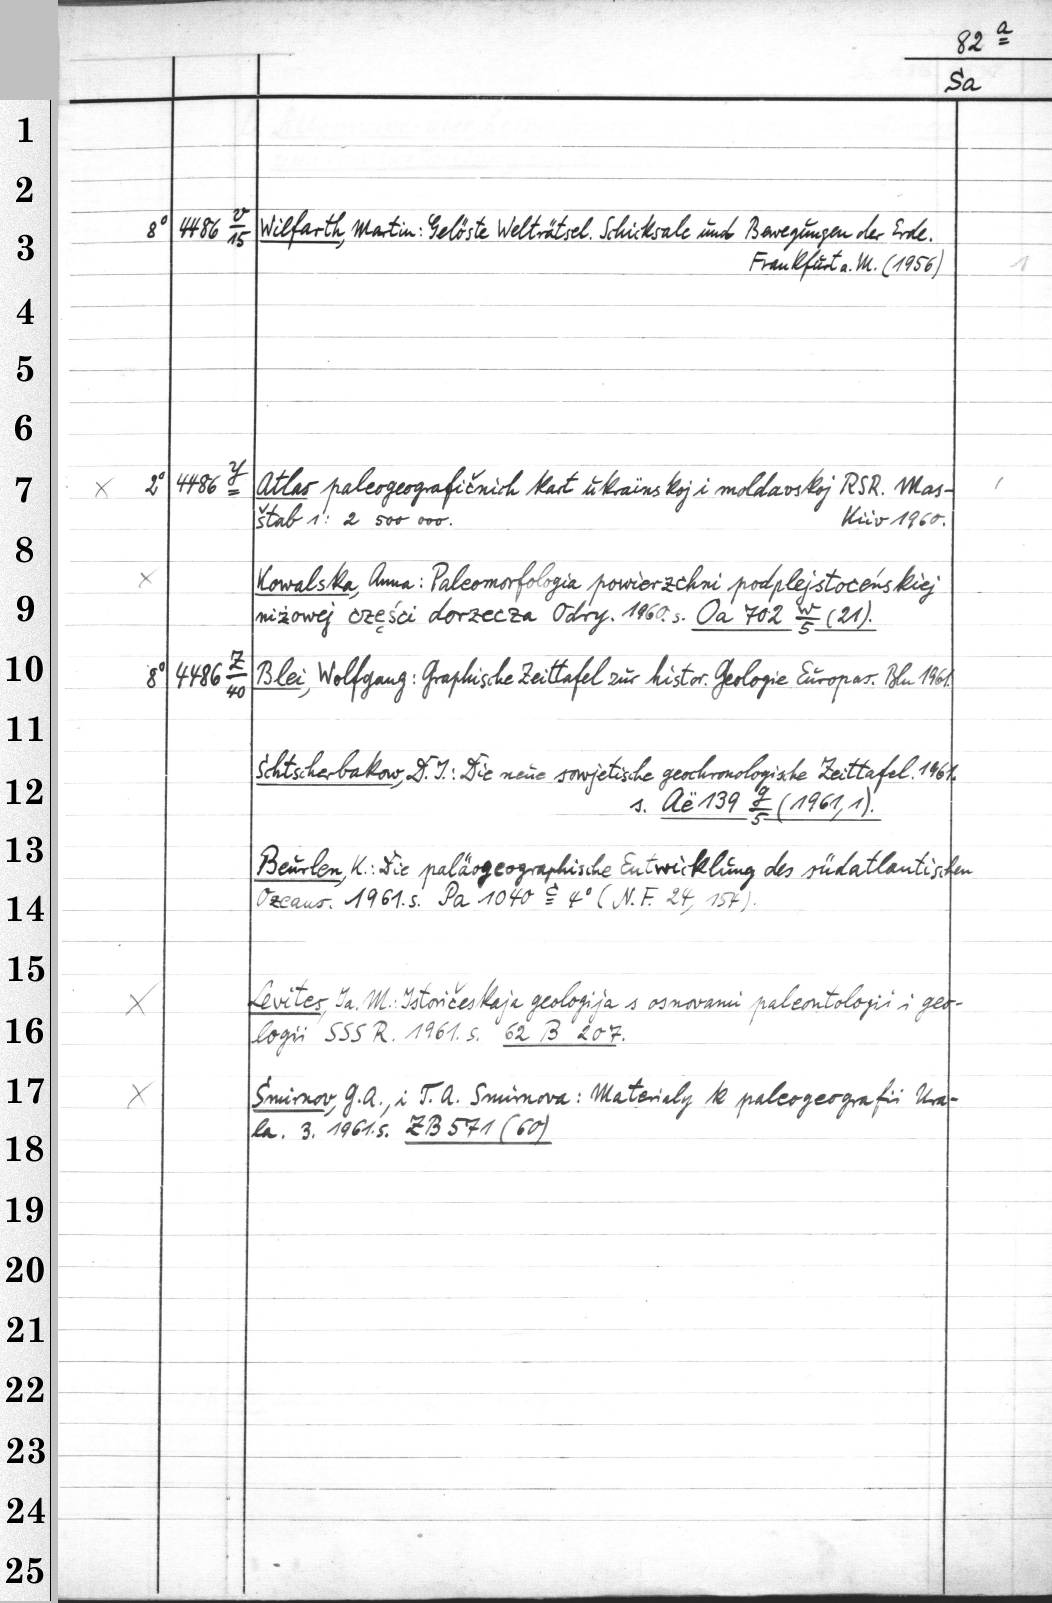 82 a
Sa
1
2
8° 4486 v/15 Wilfarth, Martin: Gelöste Welträtsel. Schicksale und Bewegungen der Erde.
3
Frankfurt a. M. (1956) 1
4
5
6
7 × 2° 4486 y Atlas paleogeografičnich kart ukraïnskoj i moldavskoj RSR. Mas-
štab 1: 2 500 000. Kiiv 1960.
8
× Kowalska, Anna: Paleomorfologia powierzchni podplejstoceńskiej
9 niżowej części dorzecza Odry. 1960. s. Oa 702 w/5 (21).
10 8° 4486 z/40 Blei, Wolfgang: Graphische Zeittafel zur histor. Geologie Europas. Bln 1961.
11
Schtscherbakow, D. I.: Die neue sowjetische geochronologische Zeittafel. 1961.
12 s. Aë 139 g/5 (1961, 1).
13 Beurlen, K.: Die paläogeographische Entwicklung des südatlantischen
14 Ozeans. 1961. s. Pa 1040 c 4° (N. F. 24, 154).
15
× Levites, Ja. M.: Istoričeskaja geologija s osnovami paleontologii i geo-
16 logii SSSR. 1961. s. 62 B 207.
17 × Smirnov, G. A., i T. A. Smirnova: Materialy k paleogeografii Ura-
la. 3. 1961. s. ZB 571 (60)
18
19
20
21
22
23
24
25